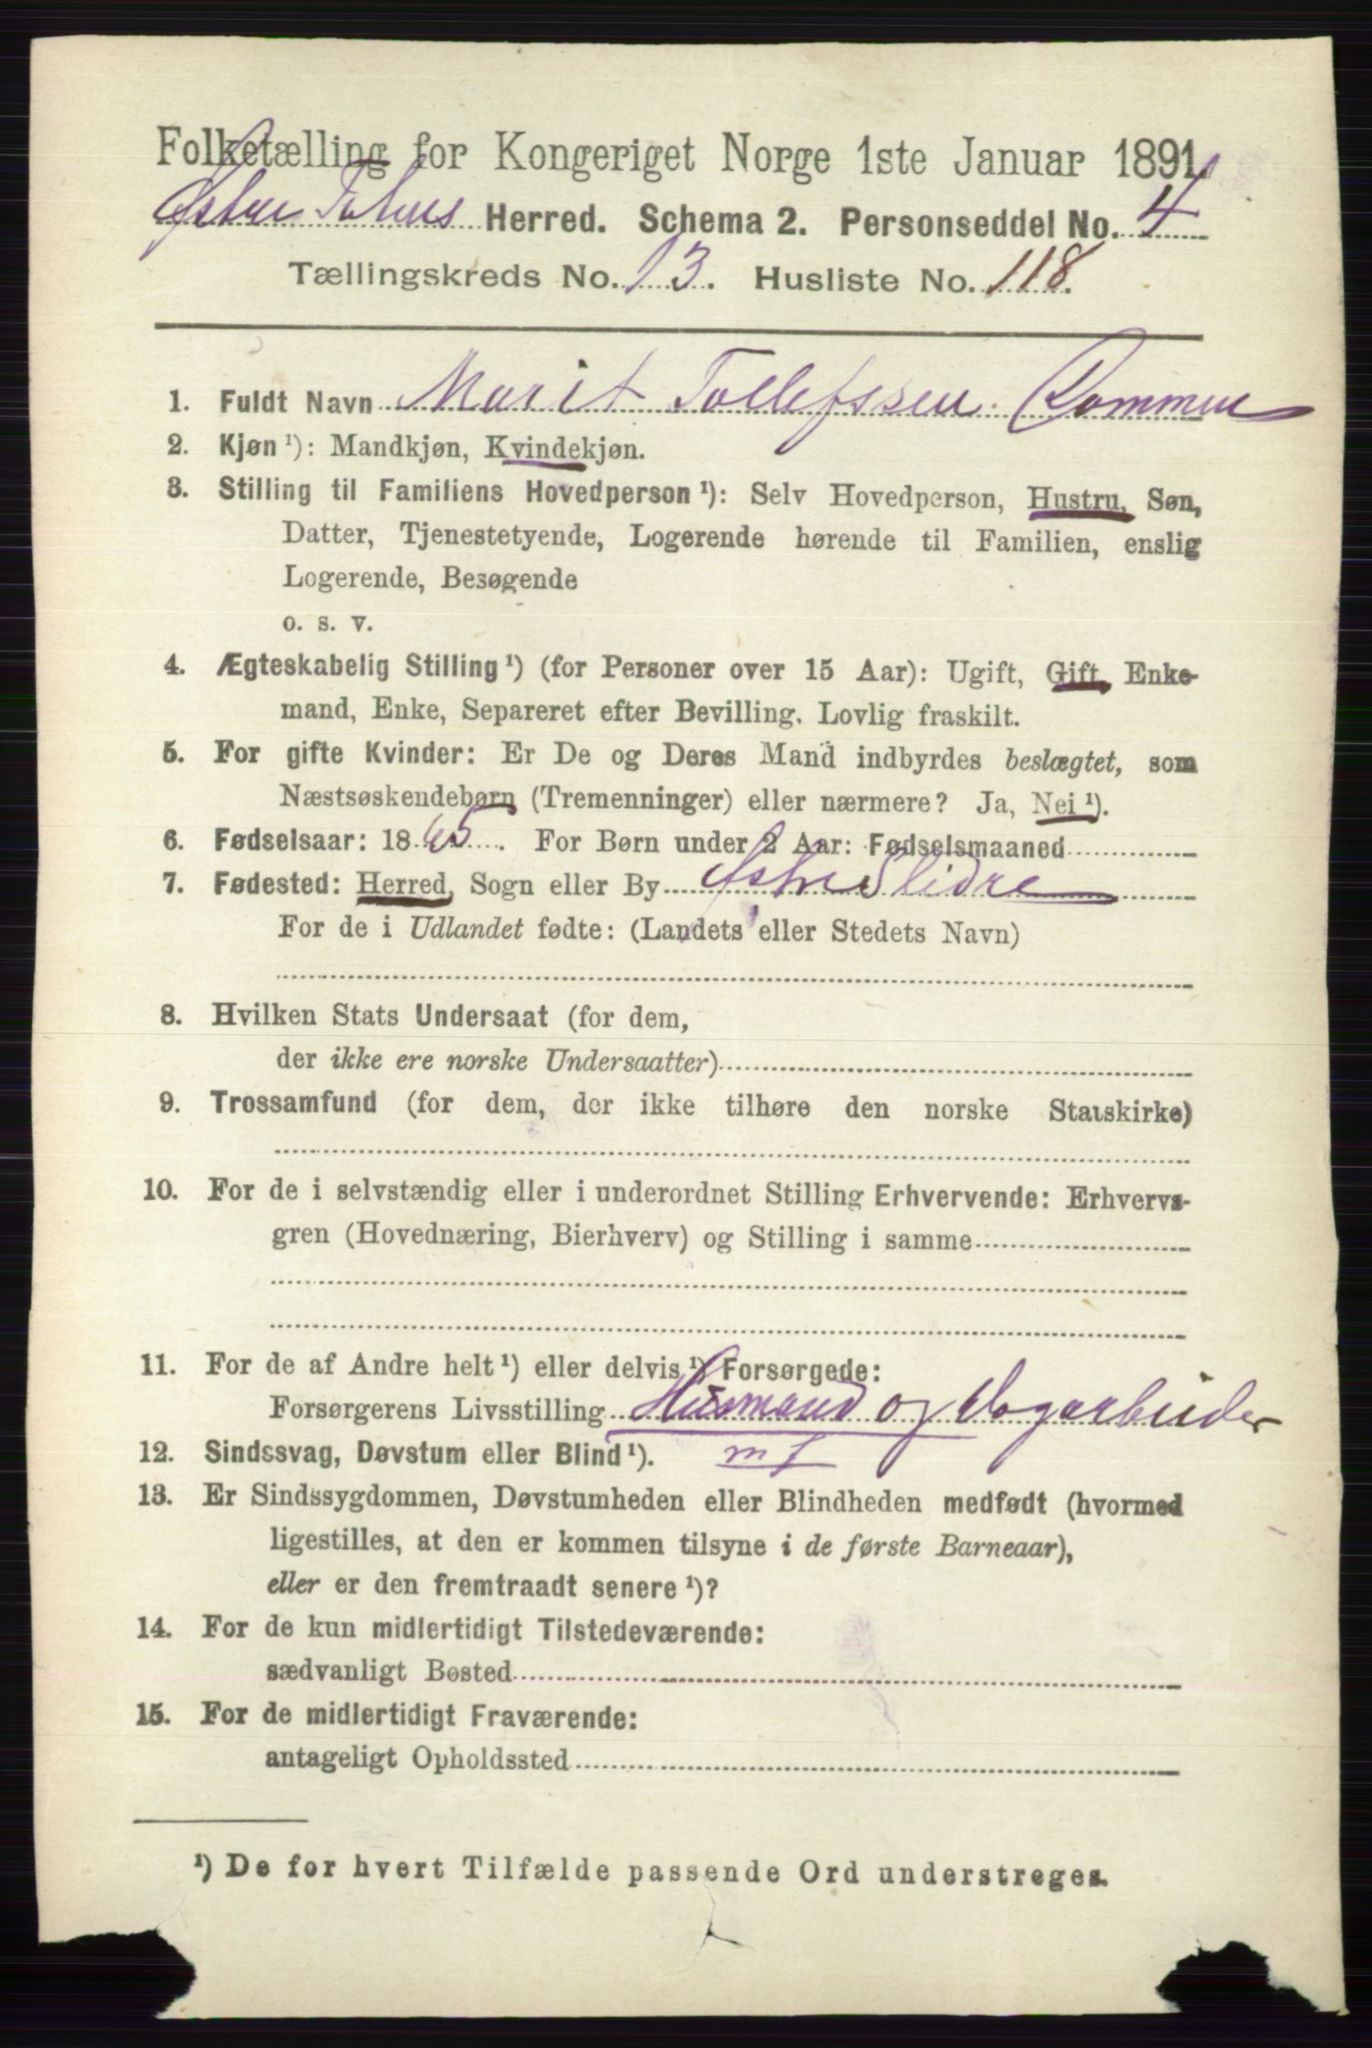 Folketælling for Kongeriget Norge 1ste Januar 1891.
Østre Totens Herred. Schema 2. Personseddel No. 4
Tællingskreds No. 13. Husliste No. 118.
1. Fuldt Navn Marit Tollefssen Rommen
2. Kjøn ¹): Mandkjøn, Kvindekjøn.
3. Stilling til Familiens Hovedperson ¹): Selv Hovedperson, Hustru, Søn,
Datter, Tjenestetyende, Logerende hørende til Familien, enslig
Logerende, Besøgende
o. s. v.
4. Ægteskabelig Stilling ¹) (for Personer over 15 Aar): Ugift, Gift, Enke-
mand, Enke, Separeret efter Bevilling. Lovlig fraskilt.
5. For gifte Kvinder: Er De og Deres Mand indbyrdes beslægtet, som
Næstsøskendebørn (Tremenninger) eller nærmere? Ja, Nei ¹).
6. Fødselsaar: 1865. For Børn under 2 Aar: Fødselsmaaned
7. Fødested: Herred, Sogn eller By Østre Slidre
For de i Udlandet fødte: (Landets eller Stedets Navn)
8. Hvilken Stats Undersaat (for dem,
der ikke ere norske Undersaatter)
9. Trossamfund (for dem, der ikke tilhøre den norske Statskirke)
10. For de i selvstændig eller i underordnet Stilling Erhvervende: Erhvervs-
gren (Hovednæring, Bierhverv) og Stilling i samme
11. For de af Andre helt ¹) eller delvis ¹) Forsørgede:
Forsørgerens Livsstilling Husmand og Dagarbeider
12. Sindssvag, Døvstum eller Blind ¹). m f
13. Er Sindssygdommen, Døvstumheden eller Blindheden medfødt (hvormed
ligestilles, at den er kommen tilsyne i de første Barneaar),
eller er den fremtraadt senere ¹)?
14. For de kun midlertidigt Tilstedeværende:
sædvanligt Bosted
15. For de midlertidigt Fraværende:
antageligt Opholdssted
¹) De for hvert Tilfælde passende Ord understreges.